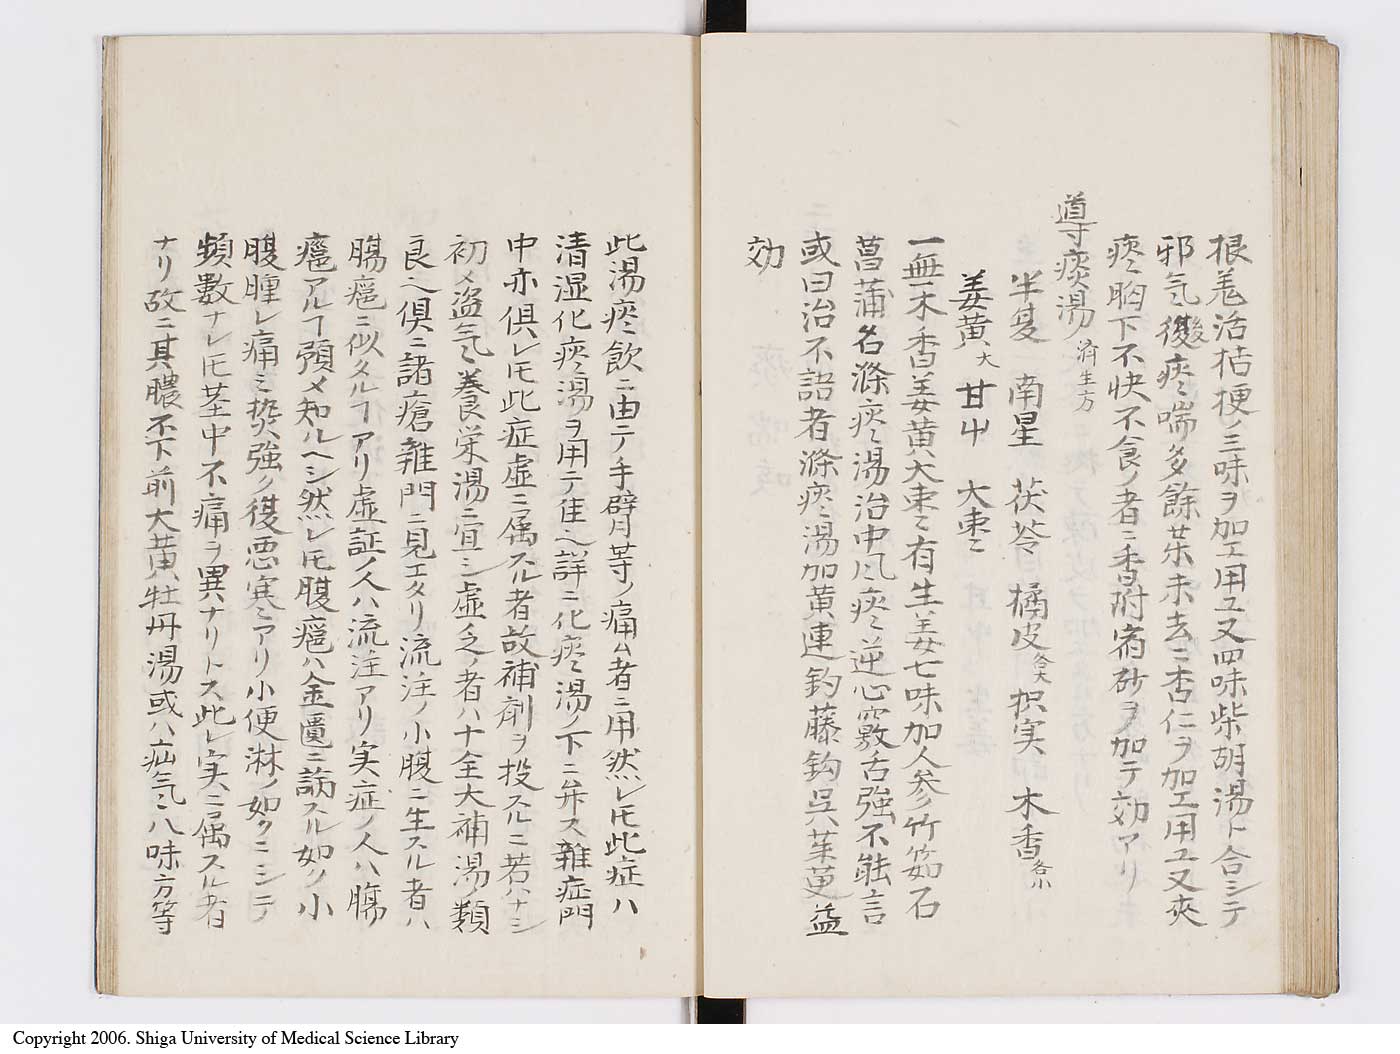 根羗活桔梗ノ三味ヲ加エ用ユ又四味柴胡湯ト合シテ
邪气後痰喘多餘業未去ニ杏仁ヲ加エ用ユ又夾
痰胸下不快不食ノ者ニ香附宿砂ヲ加テ効アリ
導痰湯 済生方
半夏 南星 茯苓 橘皮各大 枳実 木香各小
姜黄大 甘中 大枣
一無木香姜黄大枣有生姜七味加人参竹筎石
菖蒲名滌痰湯治中風痰逆心竅舌強不能言
或曰治不語者滌痰湯加黄連釣藤鈎呉茱萸益
効
此湯痰飲ニ由テ手臂等ノ痛ム者ニ用然レ𪜈此症ハ
清湿化痰湯ヲ用テ佳也詳ニ化痰湯ノ下ニ弁ス雜症門
中亦倶レ𪜈此症虚ニ属スル者故補剤ヲ投スルニ若ハナシ
初メ益气養栄湯ニ宜シ虚乏ノ者ハ十全大補湯ノ類
良也倶ニ諸瘡雜門ニ見エタリ流注ノ小腹ニ生スル者ハ
腸癰ニ似タルヿアリ虚証ノ人ハ流注アリ実症ノ人ハ腸
癰アルヿ預メ知ルヘシ然レ𪜈腹癰ハ金匱ニ論スル如ク小
腹腫レ痛ミ熱強ク復悪寒アリ小便淋ノ如クニシテ
頻數ナレ𪜈茎中不痛ヲ異ナリトス此レ実ニ属スル者
ナリ故ニ其膿不下前大黄牡丹湯或ハ疝气八味方等